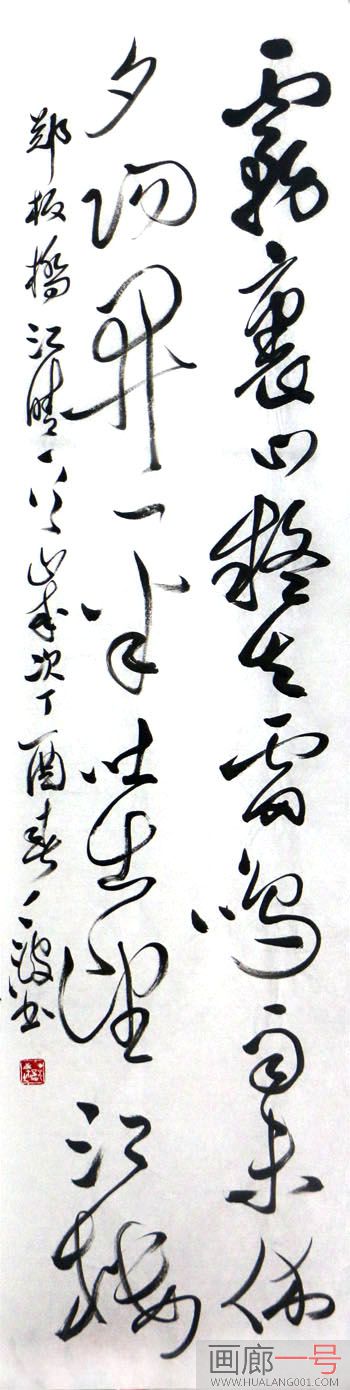 霧裹山疑失雷鳴雨未休
夕阳開一半吐出望江楼
郑板橋江晴一首歲次丁酉春书
画廊一号
WWW.HUALANG001.COM